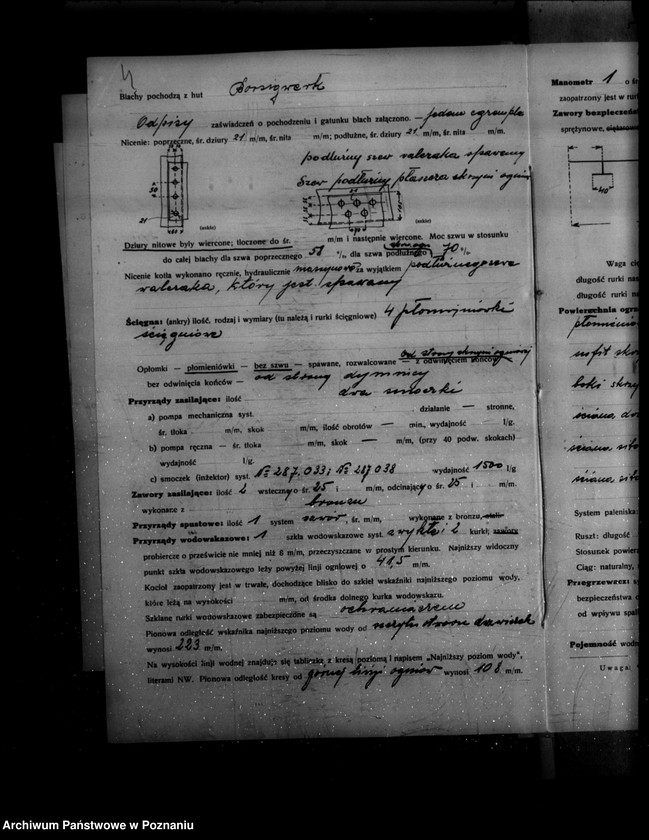 4
Blachy pochodzą z hut Borsigwerk
Odpisy zaświadczeń o pochodzeniu i gatunku blach załączono. —
Nicenie: poprzeczne, śr. dziury 21 m/m, śr. nita m/m; podłużne, śr. dziury 21 m/m, śr. nita m/m.
podłużny szew walczaka spawany
Szew podłużny płaszcza skrzyni ogniow
21
(szkic)
(szkic)
Dziury nitowe były wiercone; tłoczone do śr. m/m i następnie wiercone. Moc szwu w stosunku
do całej blachy dla szwa poprzecznego 58 %, dla szwa podłużnego 70 %
Nicenie kotła wykonano ręcznie, hydraulicznie maszynowo za wyjątkiem podłużnego szwa
walczaka, który jest spawany
Ścięgna: (ankry) ilość, rodzaj i wymiary (tu należą i rurki ścięgniowe) 4 płomieniówki
ścięgniowe
od strony skrzyni ogniowej
Opłomki — płomieniówki — bez szwu — spawane, rozwalcowane — z odwinięciem końców
bez odwinięcia końców — od strony dymnicy
Przyrządy zasilające: ilość dwa smoczki
a) pompa mechaniczna syst. działanie — stronne,
śr. tłoka m/m, skok m/m, ilość obrotów — min., wydajność l/g.
b) pompa ręczna — śr. tłoka m/m, skok — m/m, (przy 40 podw. skokach)
wydajność l/g.
c) smoczek (inżektor) syst. № 287.033; № 287038 wydajność 1500 l/g
Zawory zasilające: ilość 2 wsteczny o śr. 25 i m/m, odcinający o śr. 25 i m/m,
wykonane z bronzu
Przyrządy spustowe: ilość 1 system zawór, śr. m/m, wykonane z bronzu,
Przyrządy wodowskazowe: 1 szkła wodowskazowe syst. zwykłe i 2 kurki; zawory
probiercze o prześwicie nie mniej niż 8 m/m, przeczyszczane w prostym kierunku. Najniższy widoczny
punkt szkła wodowskazowego leży powyżej linji ogniowej o 41,5 m/m.
Kocioł zaopatrzony jest w trwałe, dochodzące blisko do szkieł wskaźniki najniższego poziomu wody,
które leżą na wysokości m/m, od środka dolnego kurka wodowskazu.
Szklane rurki wodowskazowe zabezpieczone są ochraniaczem
Pionowa odległość wskaźnika najniższego poziomu wody od
wynosi 223 m/m.
Na wysokości linji wodnej znajduje się tabliczka z kresą poziomą i napisem „Najniższy poziom wody",
literami NW. Pionowa odległość kresy od górnej linji ogniow wynosi 108 m/m.
Manometr 1 o śr
zaopatrzony jest w rurk
Zawory bezpieczeńst
sprężynowe,
40
Waga cię
długość rurki nas
długość rurki na
Powierzchnia ogrz
płomienió
sufit skrz
boki skrzy
ściana
ściana sito
ściana sito
System paleniska:
Ruszt: długość
Stosunek powierz
Ciąg: naturalny,
Przegrzewcz: sy
bezpieczeństwa o
od wpływu spali
Pojemność wodn
Uwaga:
Archiwum Państwowe w Poznaniu